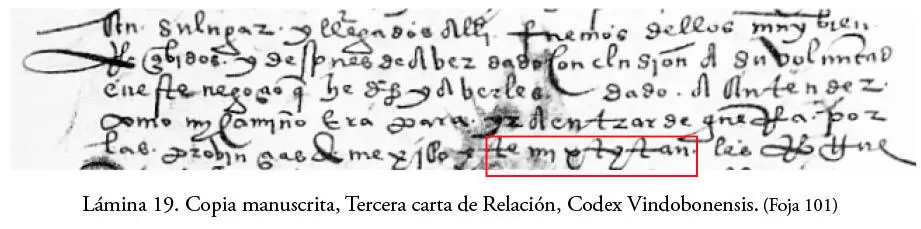 En su lugar. y llegados alli. fuemos dellos muy bien
Rescebidos. y despues de aber dado conclusion a su voluntad
en este negoçio q̃ he dho y aberles dado. a Entender.
como mi camino Era para. yr a entrar de guerra. por
las. probinçias de mexico y temixtitan. les
Lámina 19. Copia manuscrita, Tercera carta de Relación, Codex Vindobonensis. (Foja 101)